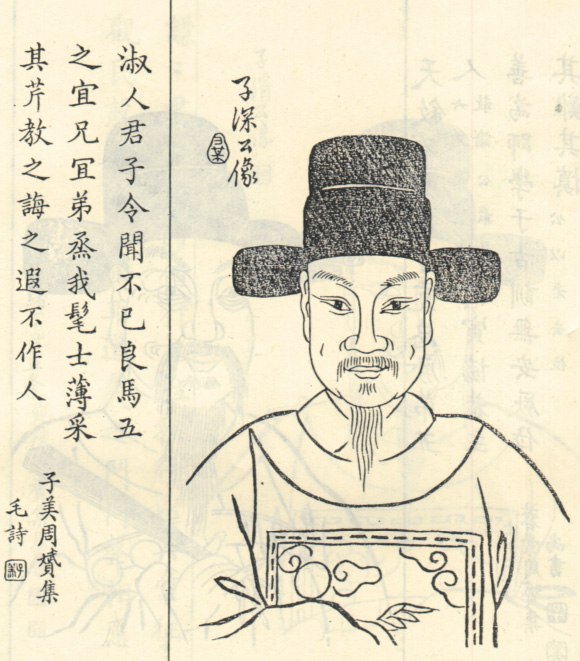 子深公像
淑人君子令聞不已良馬五
之宜兄宜弟烝我髦士薄采
其芹教之誨之遐不作人
子美周贇集
毛詩